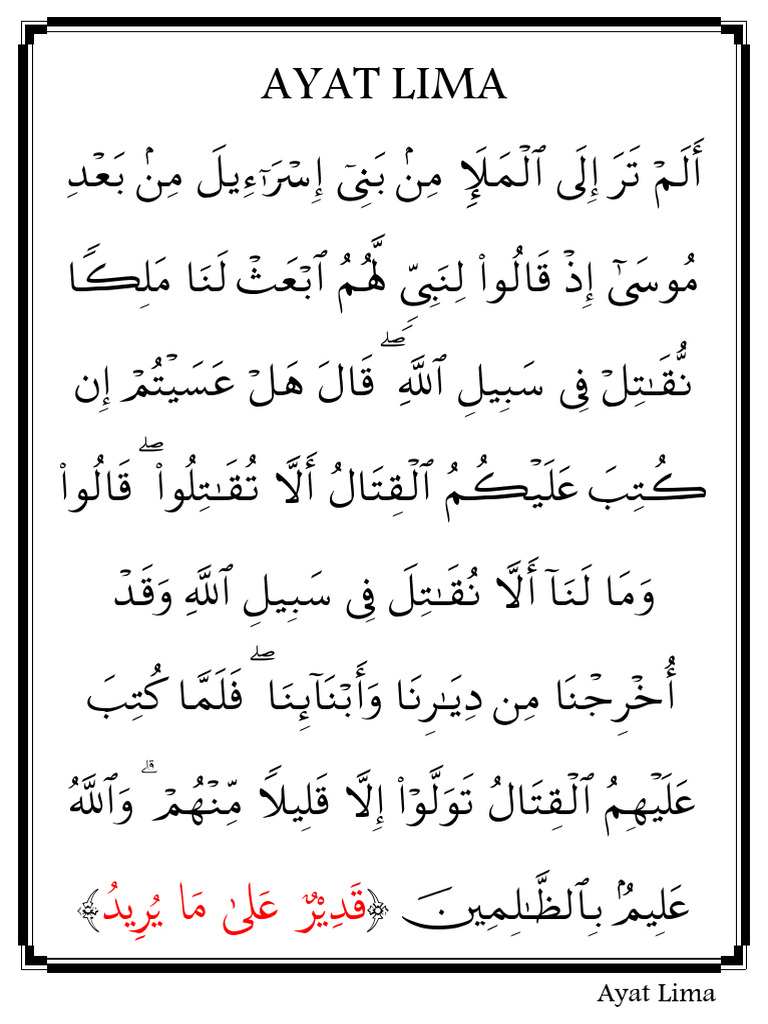 AYAT LIMA
أَلَمۡ تَرَ إِلَى ٱلۡمَلَإِ مِنۢ بَنِىٓ إِسۡرَٰٓءِيلَ مِنۢ بَعۡدِ
مُوسَىٰٓ إِذۡ قَالُواْ لِنَبِىٍّ لَّهُمُ ٱبۡعَثۡ لَنَا مَلِكًا
نُّقَـٰتِلۡ فِى سَبِيلِ ٱللَّهِۖ قَالَ هَلۡ عَسَيۡتُمۡ إِن
كُتِبَ عَلَيۡكُمُ ٱلۡقِتَالُ أَلَّا تُقَـٰتِلُواْۖ قَالُواْ
وَمَا لَنَآ أَلَّا نُقَـٰتِلَ فِى سَبِيلِ ٱللَّهِ وَقَدۡ
أُخۡرِجۡنَا مِن دِيَـٰرِنَا وَأَبۡنَآئِنَاۖ فَلَمَّا كُتِبَ
عَلَيۡهِمُ ٱلۡقِتَالُ تَوَلَّوۡاْ إِلَّا قَلِيلاً مِّنۡهُمۡۗ وَٱللَّهُ
عَلِيمُۢ بِٱلظَّـٰلِمِينَ ﴿قَدِيْرٌ عَلىٰ مَا يُرِيدُ﴾
Ayat Lima